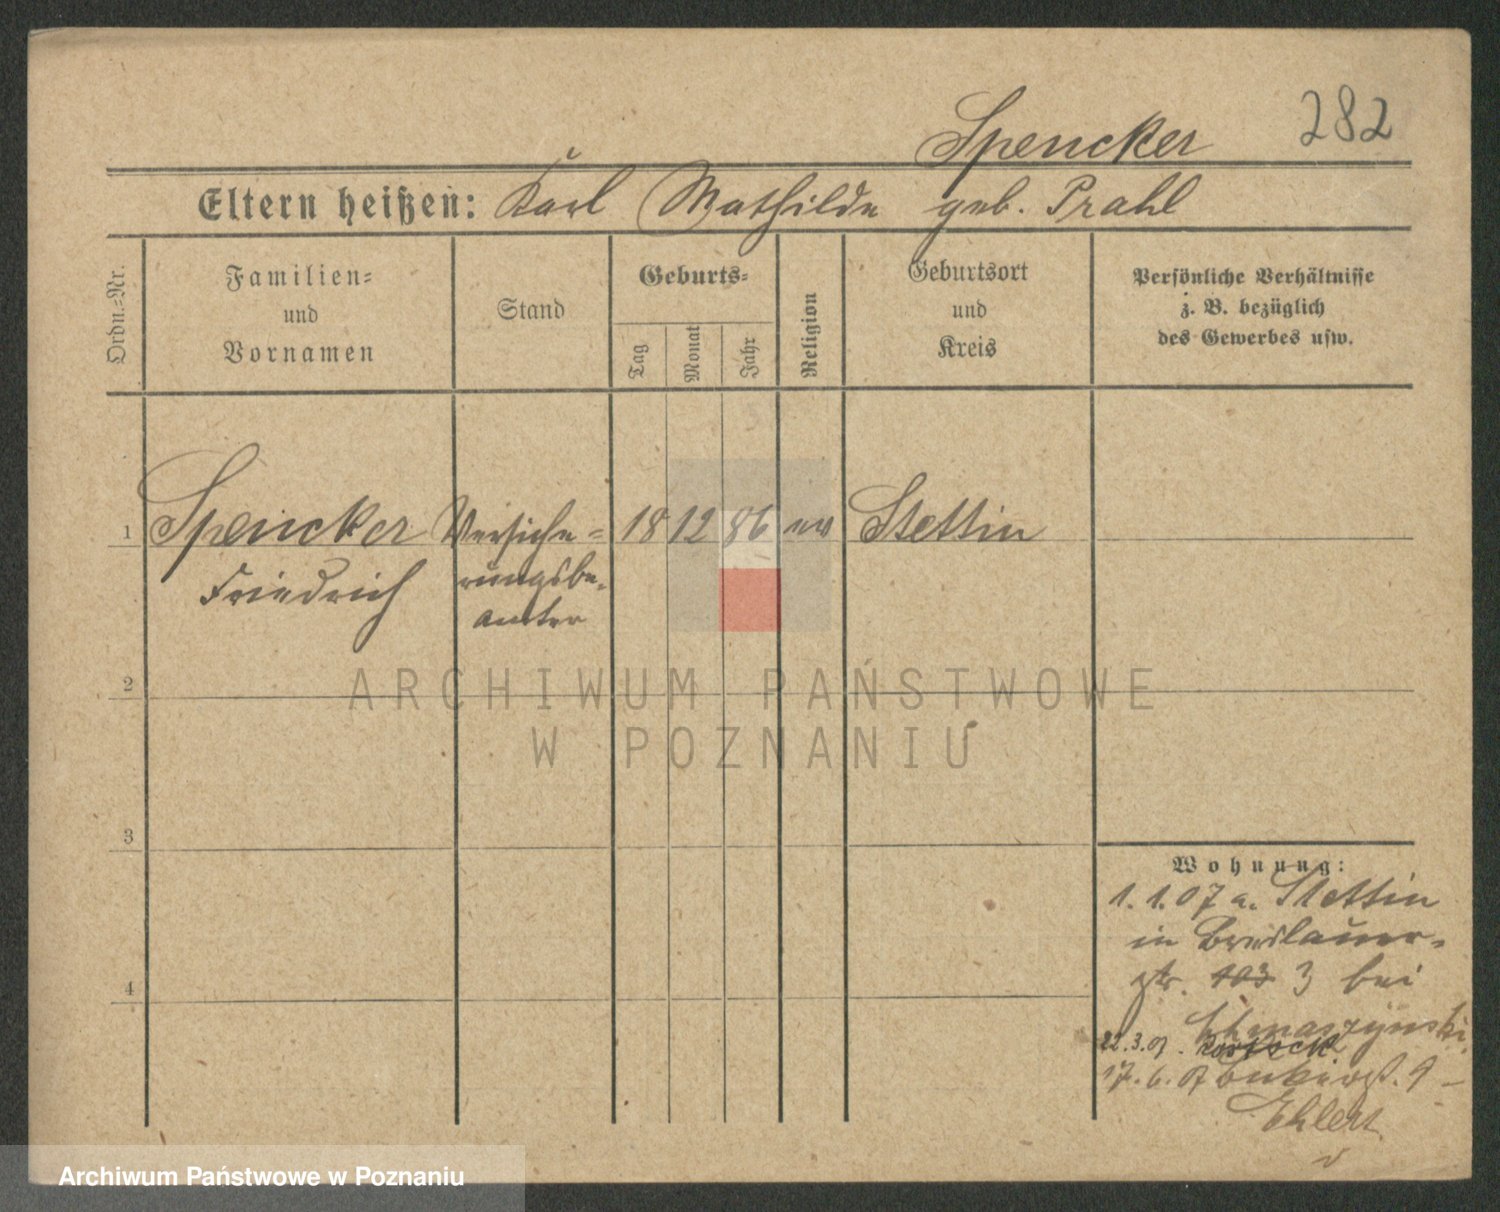 282
Spencker
Eltern heißen: Karl Mathilde geb. Prahl
Ordn.-Nr.
Familien-
und
Vornamen
Stand
Geburts-
Tag
Monat
Jahr
Religion
Geburtsort
und
Kreis
Persönliche Verhältnisse
z. B. bezüglich
des Gewerbes usw.
1 Spencker Versiche= 18 12 86 ev Stettin
Friedrich rungsbe-
amter
2
ARCHIWUM PAŃSTWOWE
W POZNANIU
3
4
Wohnung:
1.1.07 a. Stettin
in Breslauer-
str. 103 3 bei
22.3.07. Rostock
17.6.07 9 –
Ehlert
Archiwum Państwowe w Poznaniu